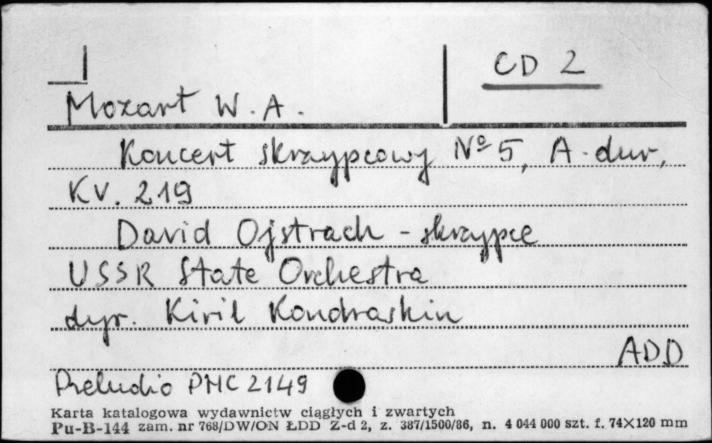 CD 2
Mozart W. A.
Koncert skrzypcowy Nº 5, A-dur,
KV. 219
David Ojstrach - skrzypce
USSR State Orchestra
dyr. Kirił Kondraskin
ADD
Preludio PHC 2149
Karta katalogowa wydawnictw ciągłych i zwartych
Pu-B-144 zam. nr 768/DW/ON ŁDD Z-d 2, z. 387/1500/86, n. 4 044 000 szt. f. 74X120 mm